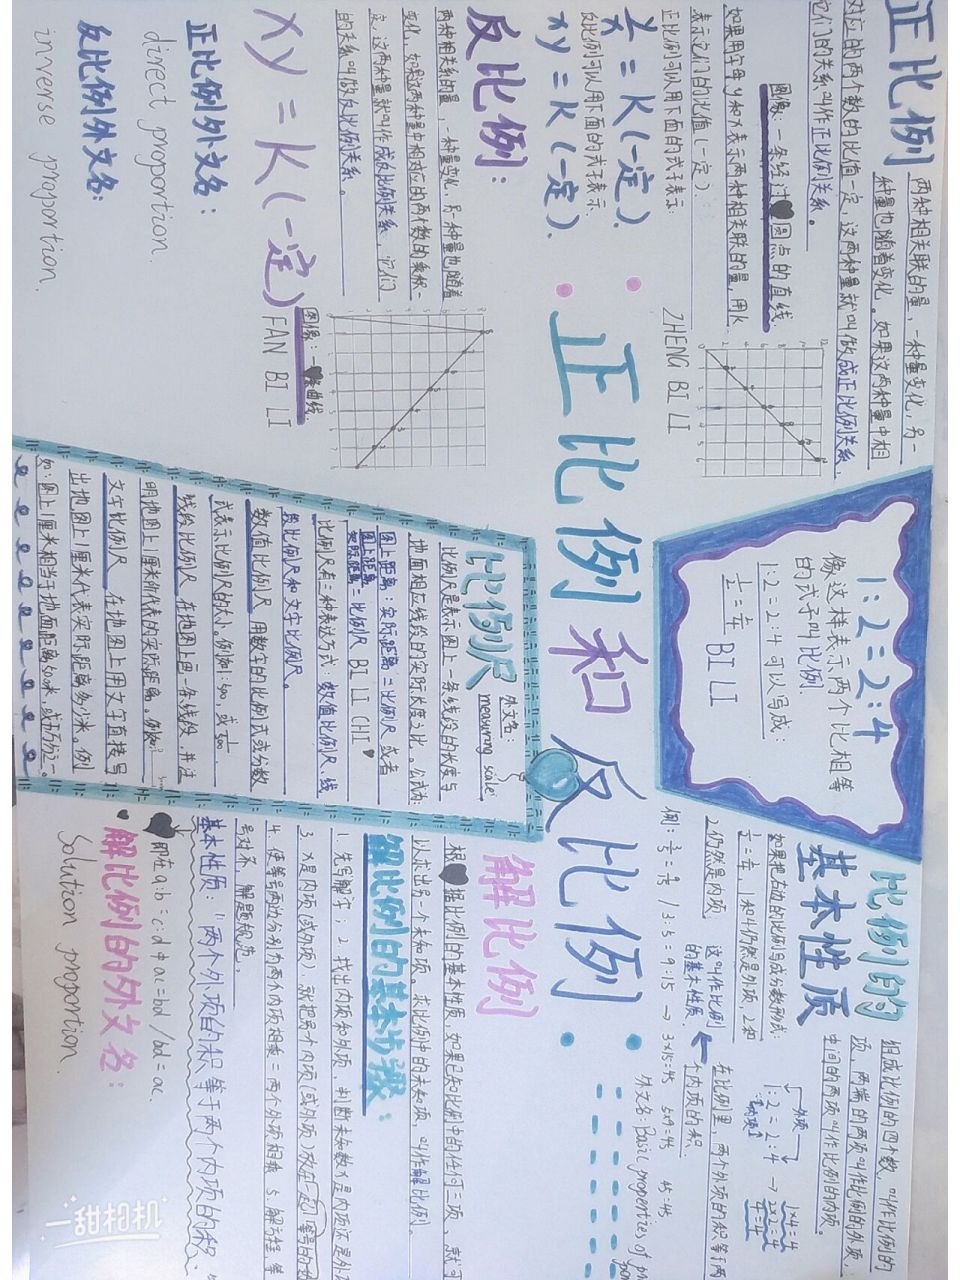 正比例和反比例
正比例
两种相关联的量，一种量变化，另一
种量也随着变化。如果这两种量中相
对应的两个数的比值一定，这两种量就叫做成正比例关系
它们的关系叫作正比例关系。
图像：一条经过圆点的直线
如果用字母y和x表示两种相关联的量，用k
表示它们的比值（一定）.
正比例可以用下面的式子表示:
= K(一定).
反比例可以用下面的式子表示.
xy = K(一定).
ZHENG BI LI
反比例:
两种相关联的量，一种量变化，另一种量也随着
变化，如果这两种量中相对应的两个数的乘积一
定，这两种量就叫作成反比例关系，它们
的关系叫做反比例关系。
xy = K(一定)
图像：一条曲线.
FAN BI LI
正比例外文名:
direct proportion.
反比例外文名:
inverse proportion.
1:2=2:4
像这样表示两个比相等
的式子叫比例
1:2=2:4可以写成:
BI LI
比例尺
外文名:
measuring scale
比例尺是表示图上一条线段的长度与
地面相应线段的实际长度之比。公式为:
图上距离:实际距离=比例尺 或者
图上距离
实际距离
=比例尺 BI LI CHI
比例尺有三种表达方式:数值比例尺、线
段比例尺和文字比例尺。
数值比例尺 用数字的比例式或分数
式表示比例尺的大小。
线段比例尺 在地图上画一条线段，并注
明地图上1厘米所代表的实际距离。
文字比例尺 在地图上用文字直接写
出地图上1厘米代表实际距离多少米，例
如:图上1厘米相当于地面距离500米，或五万分之一。
比例的
基本性质
组成比例的四个数，叫作比例的
项，两端的两项叫作比例的外项，
中间的两项叫作比例的内项。
外项
1:2=2:4 →
内项
1×4=4
2×2=4
4=4
如果把右边的比例写成分数形式:
1和4仍然是外项，2和
2仍然是内项
在比例里，两个外项的积等于两
个内项的积
这叫作比例
的基本性质.
3:5=9:15 → 3×15=45 5×9=45 45=45
外文名:Basic properties of
解比例
根据比例的基本性质，如果已知比例中的任何三项，就可
以求出另一个未知项。求比例中的未知项，叫作解比例
解比例的基本步骤:
1. 先写解字; 2. 找出内项和外项，判断未知数x是内项还是外
3. x是内项(或外项)，就把另一个内项(或外项)放在
4. 使等号两边分别为两个内项相乘=两个外项相乘 5. 解方程，等
号对齐，解题规范。
基本性质:"两个外项的积等于两个内项的积
即在a:b=c:d中ac=bd/bd=ac.
解比例的外文名:
Solution proportion.
一甜相机